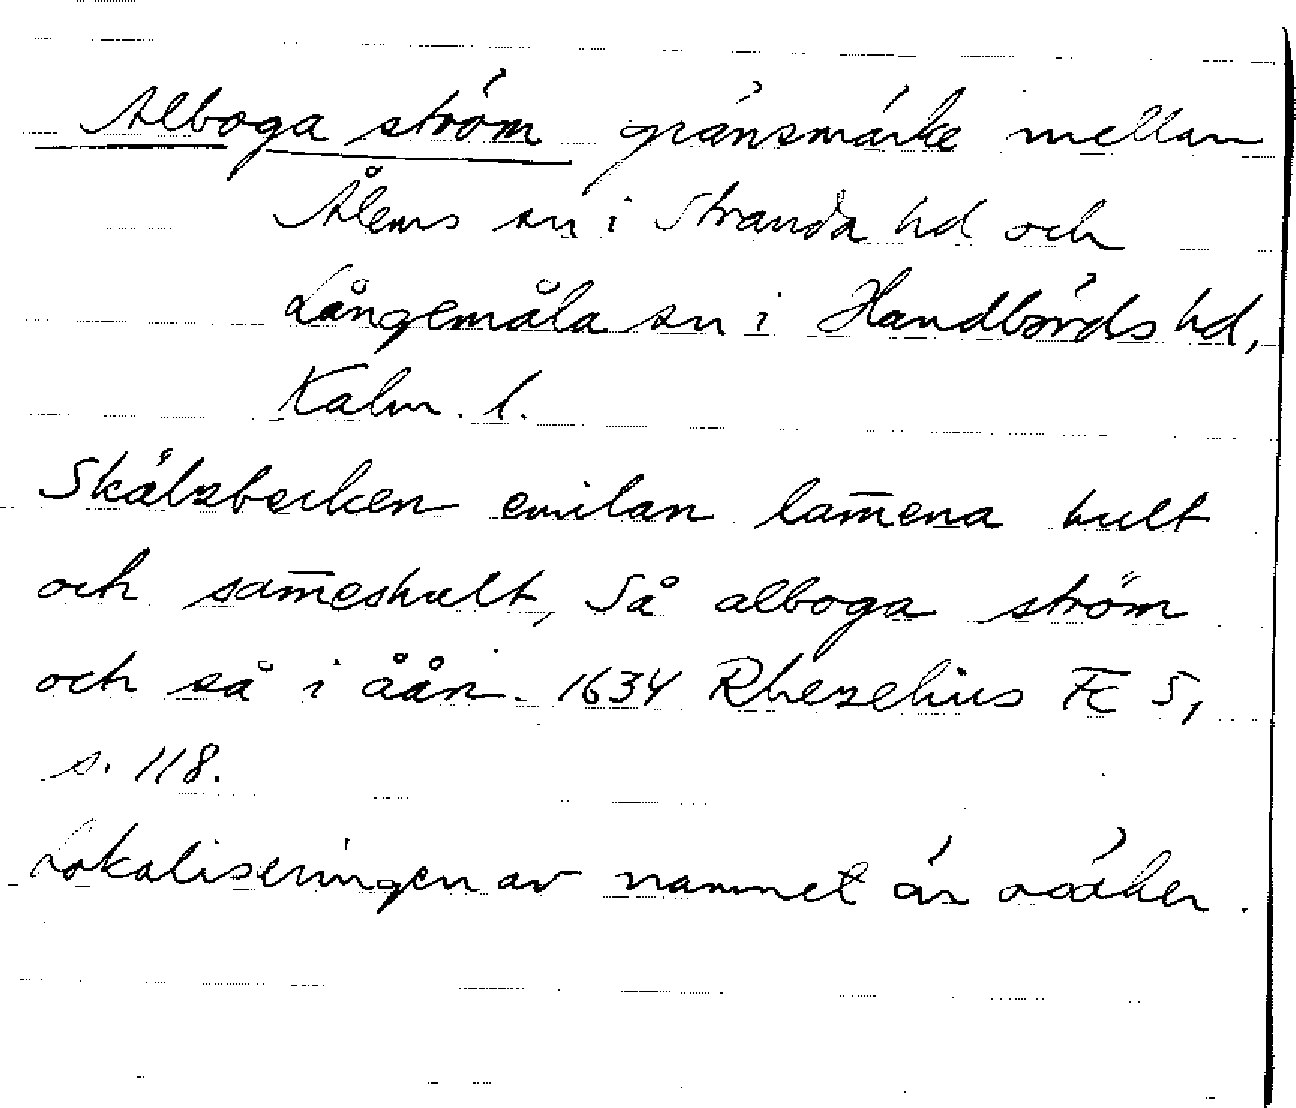 Alboga ström gränsmärke mellan
Ålems sn i Stranda hd och
Långemåla sn i Handbörds hd,
Kalm. l.
och sam̅eshult, Så alboga ström
och så i åån. 1634 Rhezelius Fc 5,
s. 118.
Lokaliseringen av namnet är osäker.